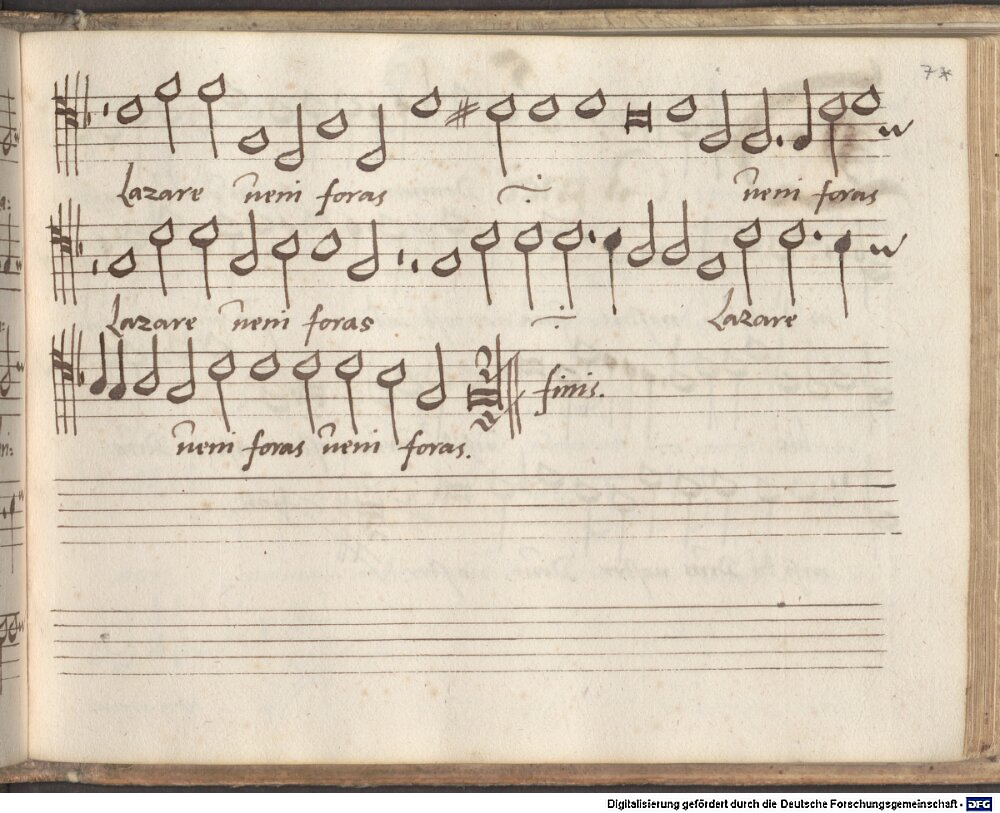 7*
Lazare veni foras veni foras
Lazare veni foras Lazare
finis.
veni foras veni foras.
Digitalisierung gefördert durch die Deutsche Forschungsgemeinschaft - DFG